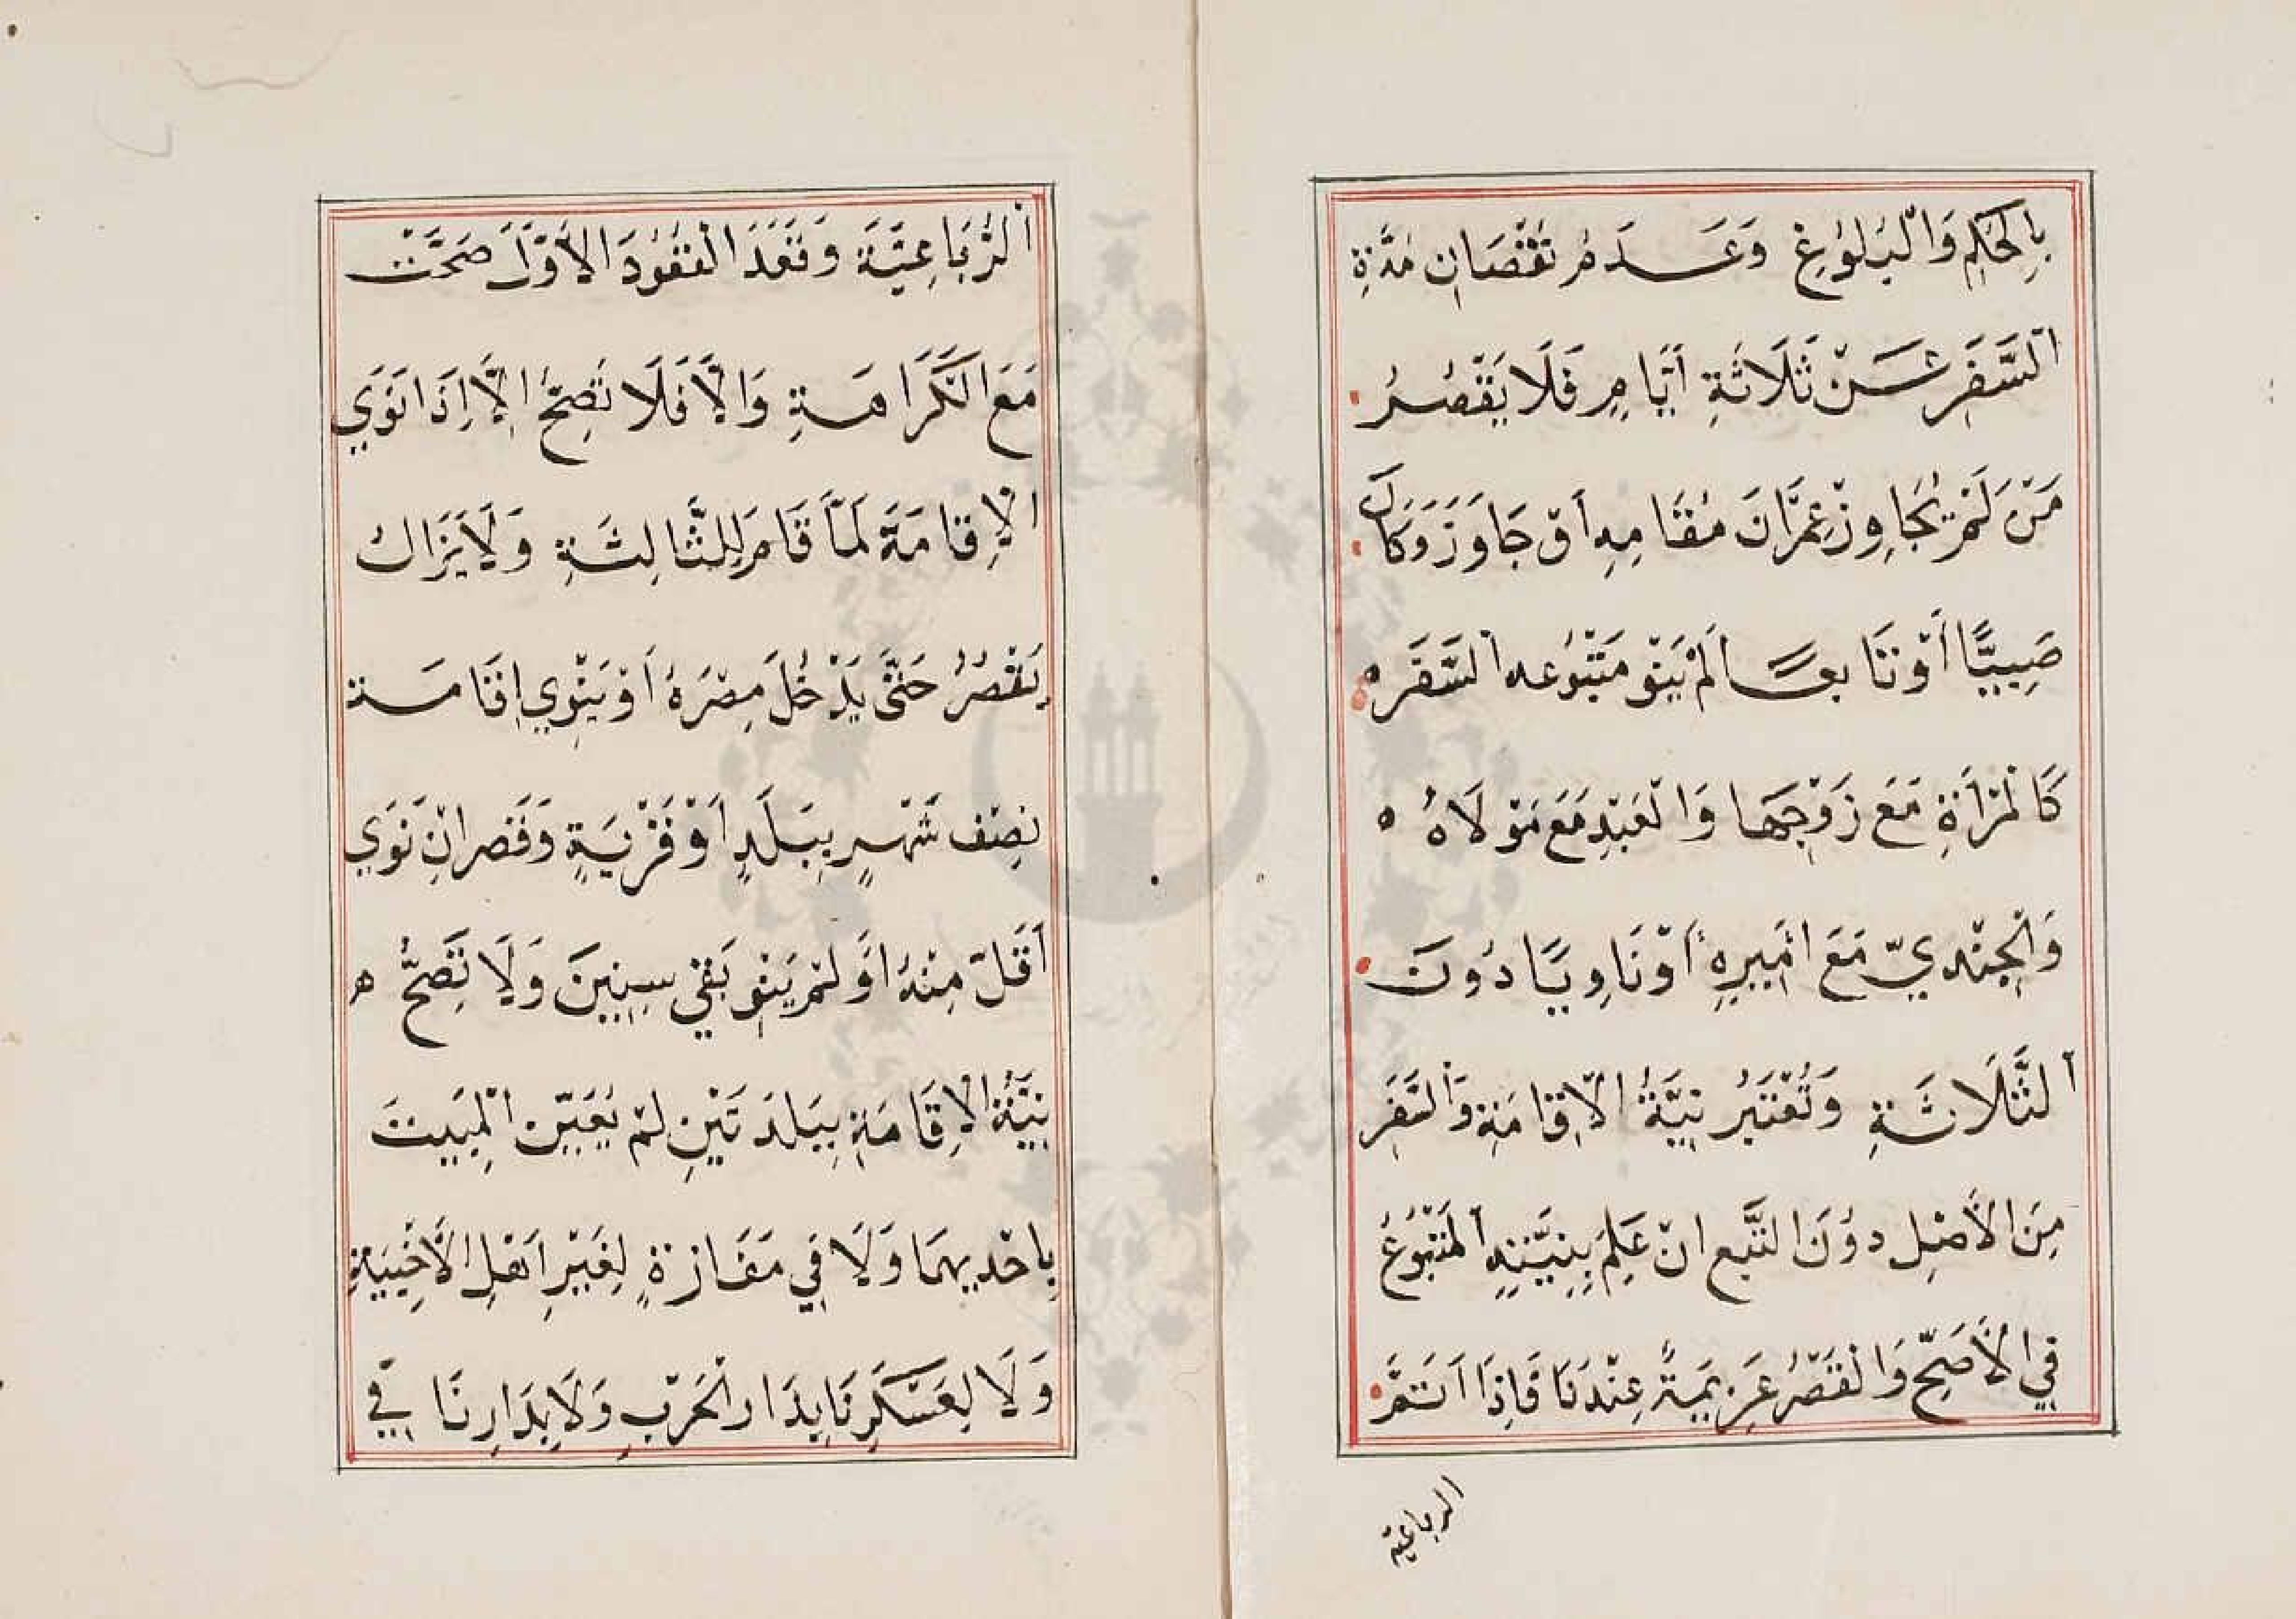 بِالْحُكْمِ وَالْبُلُوغِ وَعَدَمُ نُقْصَانِ مُدَّةِ
السَّفَرِ عَنْ ثَلَاثَةِ أَيَّامٍ فَلَا يَقْصُرُ
مَنْ لَمْ يُجَاوِزْ عِمْرَانَ مُقَامِهِ أَوْ جَاوَزَ وَكَانَ
صَبِيًّا أَوْ تَابِعًا لَمْ يَنْوِ مَتْبُوعُهُ السَّفَرَ
كَالْمَرْأَةِ مَعَ زَوْجِهَا وَالْعَبْدِ مَعَ مَوْلَاهُ
وَالْجُنْدِيِّ مَعَ أَمِيرِهِ أَوْ نَاوِيًا دُونَ
الثَّلَاثَةِ وَتُعْتَبَرُ نِيَّةُ الْإِقَامَةِ وَالسَّفَرِ
مِنَ الْأَصْلِ دُوْنَ التَّبَعِ انْ عَلِمَ بِنِيَّتِهِ الْمَتْبُوعُ
فِي الْأَصَحِّ وَالْقَصْرُ عَزِيمَةٌ عِنْدَنَا فَاِذَا اَتَمَّ
الرباعية
الرُّبَاعِيَّةَ وَقَعَدَ الْقُعُودَ الْأَوَّلَ صَحَّتْ
مَعَ الْكَرَاهَةِ وَالَّا فَلَا تَصِحُّ الَّا اِذَا نَوَي
الْاِقَامَةَ لَمَّا قَامَ لِلثَّالِثَةِ وَلَا يَزَالُ
يَقْصُرُ حَتَّى يَدْخُلَ مِصْرَهُ اَوْ يَنْوِي اِقَامَتَه
نِصْف شَهْرٍ بِبَلَدٍ اَوْ قَرْيَةٍ وَقَصَرَ انْ نَوَي
اَقَلَّ مِنْهُ اَوْ لَمْ يَنْوِ بَقِيَ سِنِينَ وَلَا تَصِحُّ ه
نِيَّةُ الْاِقَامَةِ بِبَلَدَتَيْنِ لَمْ يُعَيِّنِ الْمَبِيتَ
بِاحْدَيهِمَا وَلَا فِي مَفَازَةٍ لِغَيْرِ اَهْلِ الْأَخْبِيَةِ
وَلَا لِعَسْكَرِنَا بِدَارِ الْحَرْبِ وَلَا بِدَارِنَا فِي